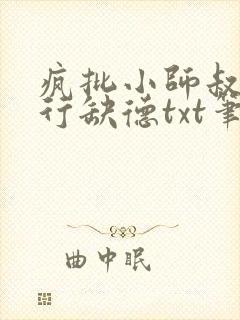 疯批小师叔
行缺德txt笔
曲中眠